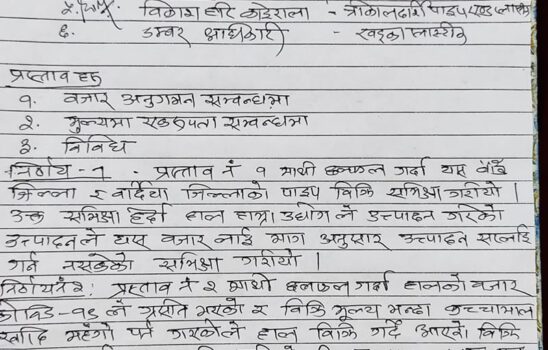 विकाश हरि कोइराला - त्रीकालदर्शि पाइप एण्ड प्लाष्टिक
६. डम्बर अधिकारी - खड्का प्लास्टीक
प्रस्ताव हरु
१. बजार अनुगमन सम्बन्धमा
२. मुल्यमा एकरुपता सम्बन्धमा
३. विविध
निर्णय - १ . प्रस्ताव नं १ माथी छलफल गर्दा यस बाँके
जिल्ला र बर्दिया जिल्लाको पाइप बिक्रि समिक्षा गरीयो |
उक्त समिक्षा हेर्दा हाल हाम्रा उद्योग ले उत्पादन गरेको
उत्पादनले यस बजार लाई माग अनुसार उत्पादन सप्लाई
गर्न नसकेको समिक्षा गरीयो |
निर्णय नं २ : प्रस्ताव नं २ माथी छलफल गर्दा हालको बजार
कोभिड-१९ ले प्रभावित भएको र बिक्रि मुल्य भन्दा कच्चामाल
खरीद महँगो पर्न गएकोले हाल बिक्रि गर्दै आएको बिक्रि